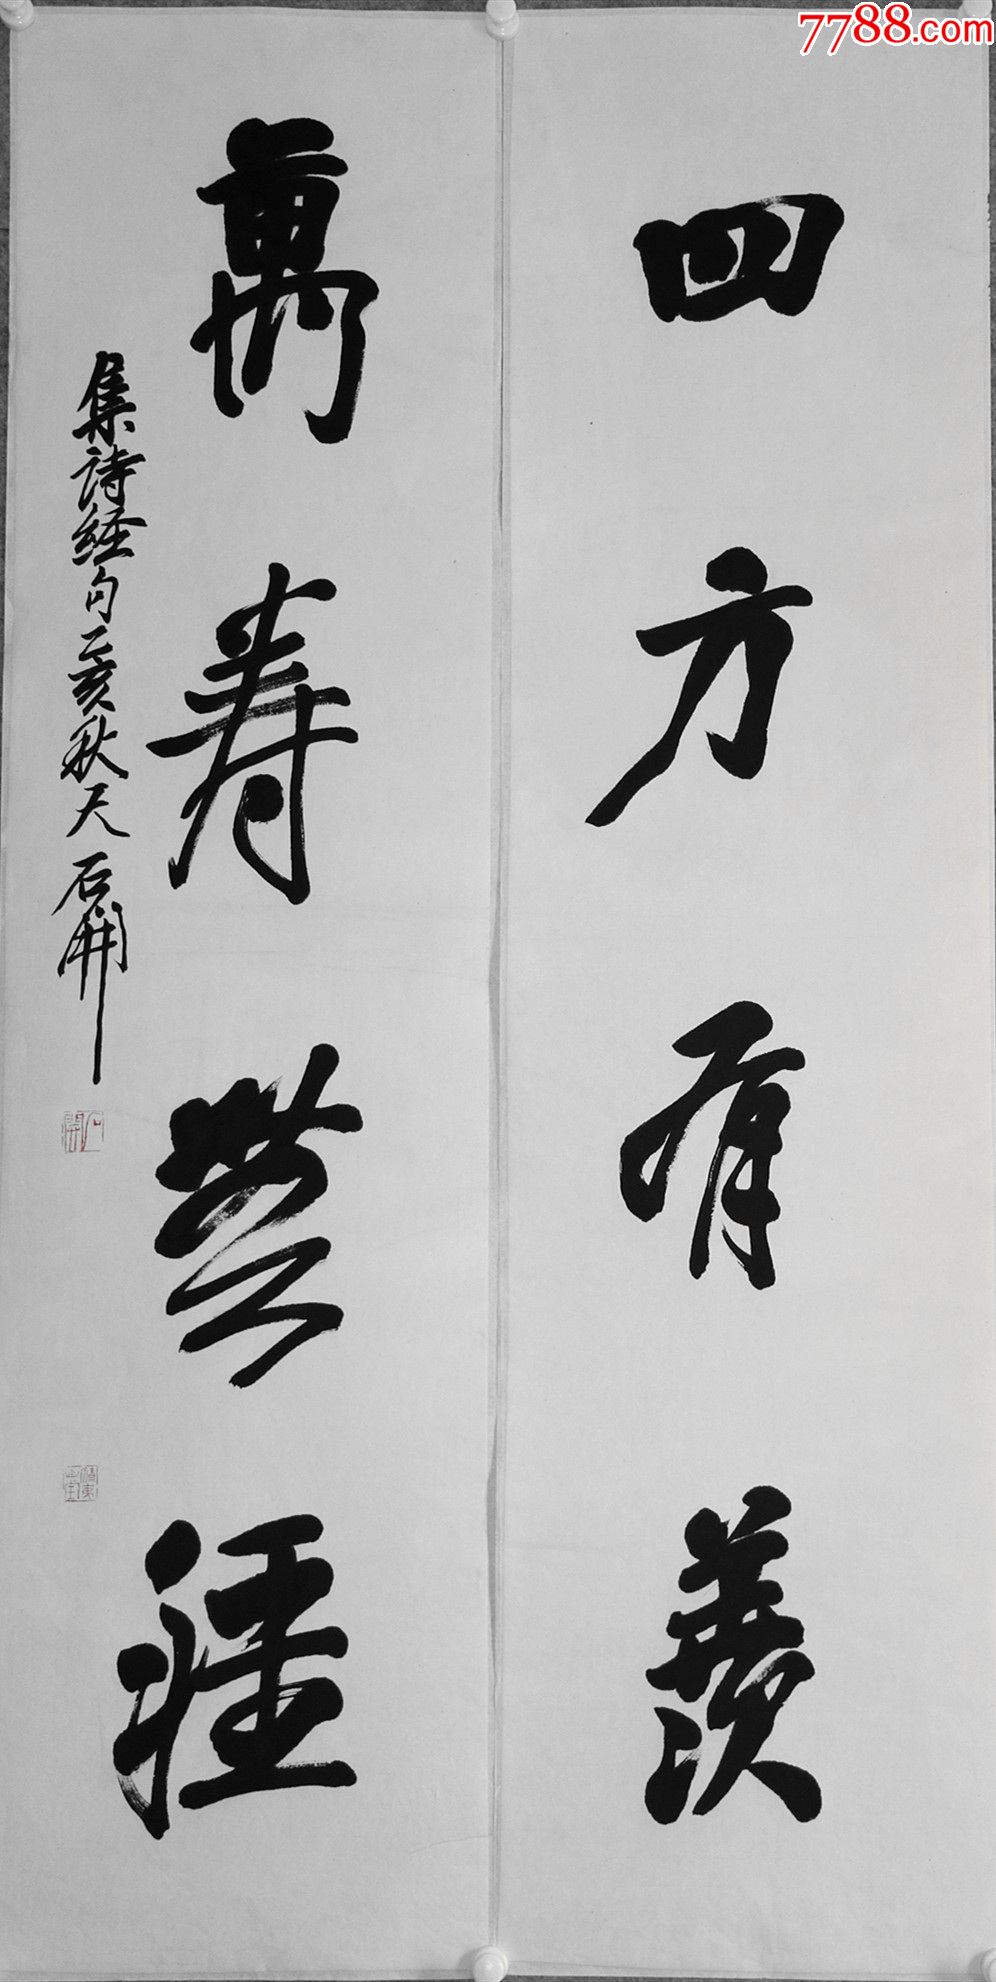 7788.com
四方有羡
萬寿無疆
集詩経句乙亥秋天石開
石開